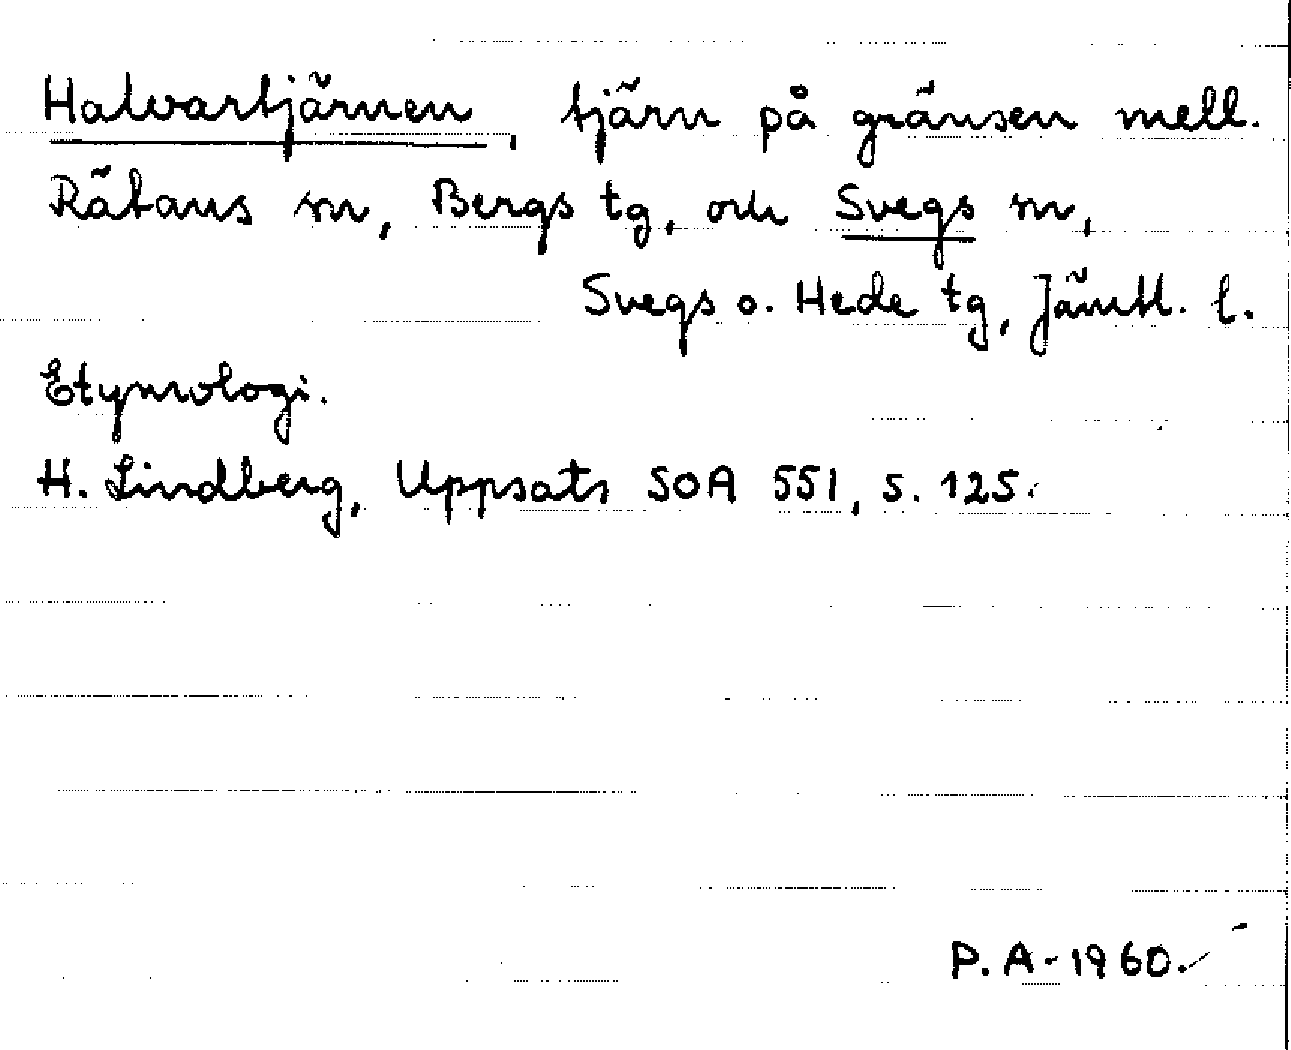 Halvartjärnen, tjärn på gränsen mell.
Rätans sn, Bergs tg, och Svegs sn,
Svegs o. Hede tg, Jämtl. l.
Etymologi.
H. Lindberg, Uppsats SOA 551, s. 125.
P. A. 1960.